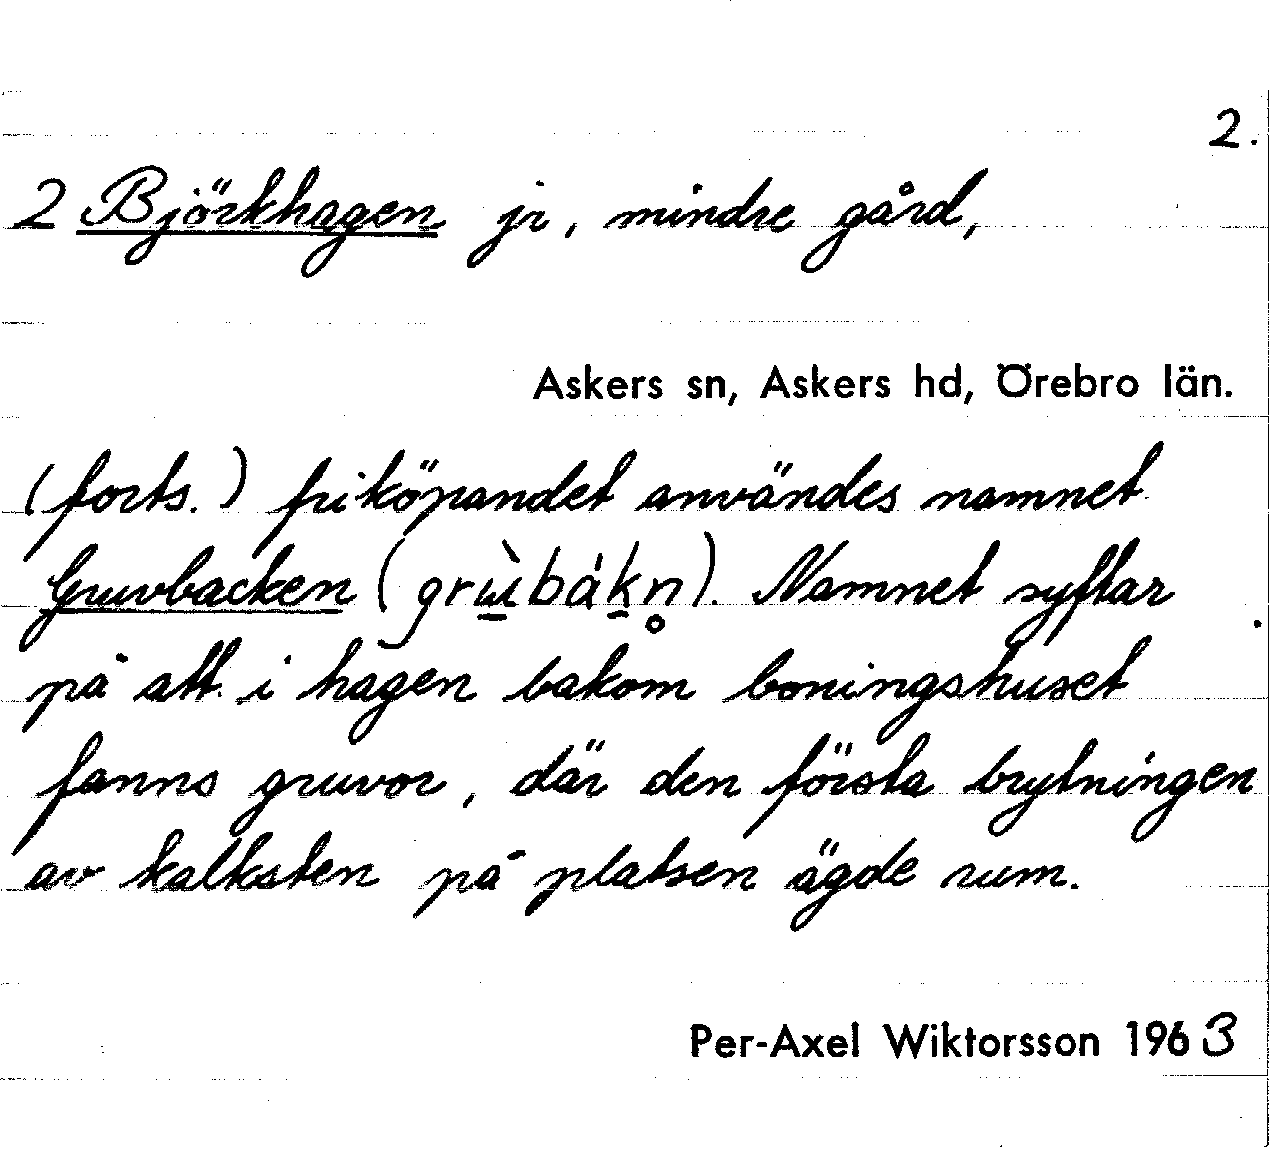 2.
2 Björkhagen jr, mindre gård,
Askers sn, Askers hd, Örebro län.
(forts.) friköpandet användes namnet
Gruvbacken (grɯ̲̀bák̲n̥). Namnet syftar
på att i hagen bakom boningshuset
fanns gruvor, där den första brytningen
av kalksten på platsen ägde rum.
Per-Axel Wiktorsson 1963